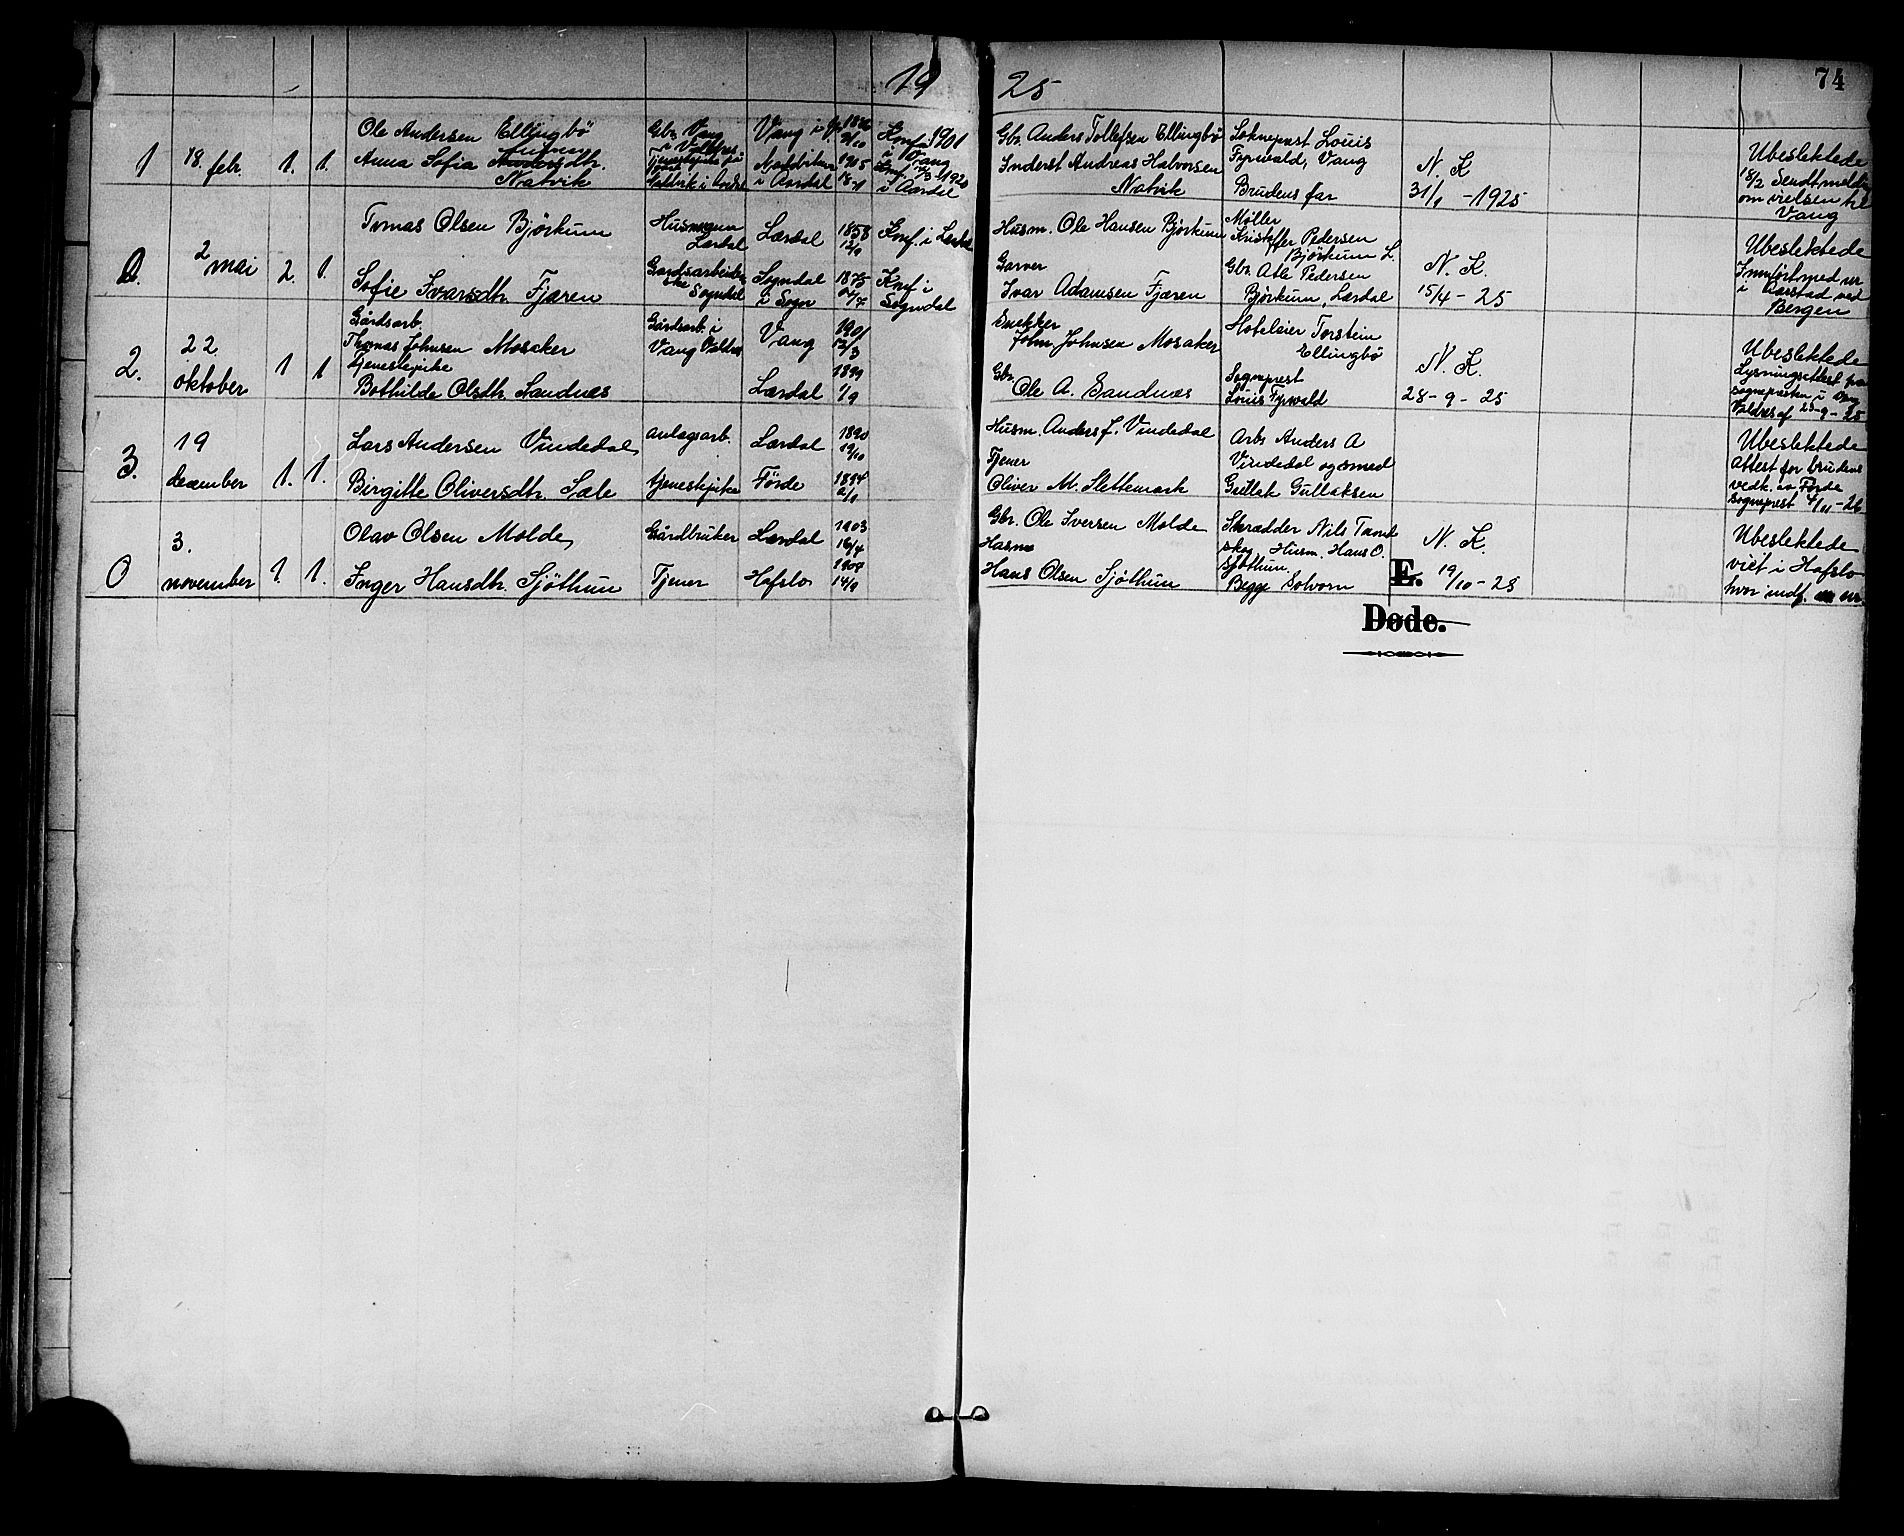 19 25
74
1 18. febr. 1. 1.
Ole Andersen Ellingbö
Anna Sofia
Natvik
Gbr. Vang
i Valdres
Vang i
i Aardal
1905
Konf. 1901
i Vang
1920
i Aardal
Gbr. Anders Tollefsen Ellingbö
Inderst Andreas Halvorsen
Natvik
Sokneprest Louis
Tyrwald, Vang
Brudens far
N. K
31/1 - 1925
Ubeslektede
18/2 Sendt melding
om vielsen til
Vang
0. 2 mai 2. 1.
Tomas Olsen Bjørkum
Sofie Ivarsdtr. Fjæren
Husmann
Lærdal
Sogndal
Lærdal
Sogndal
i Sogn
1858
12/9
1875
Konf. i Lærdal
Konf i
Sogndal
Husm. Ole Hansen Bjørkum
Garver
Ivar Adamsen Fjæren
Møller
Kristoffer Pedersen
Bjørkum L.
Gbr. Atle Pedersen
Bjørkum, Lærdal
N. K.
15/4 - 25
Ubeslektede
Innført med nr
i Aarstad ved
Bergen
2. 22 oktober 1 1
Gårdsarb.
Thomas Johnsen Mosaker
Tjenestepike
Bothilde Olsdtr. Sandnæs
Gårdsarb. i
Vang Valdres
Vang
Lærdal
1901
12/3
1899
1/9
Snekker
John Johnsen Mosaker
Gbr.
Ole A. Sandnæs
Hoteleier Torstein
Ellingbö
Sogneprest
Louis Tyrwald
N. K.
28 - 9 - 25
Ubeslektede
Lysningsattest fra
sognepresten i Vang
Valdres af 25-9-25
3. 19 december 1. 1.
Lars Andersen Vindedal
Birgitte Oliversdtr. Sæle
anlagsarb.
tjenestepike
Lærdal
Förde
1890
19/10
1894
2/1
Husm. Anders L. Vindedal
Tjener
Oliver M. Slettemark
Arb. Anders A
Vindedal og smed
Gullak Gullaksen
Ubeslektede
Attest for brudens
vedk. av Førde
sogneprest 4/11 - 26
0 3. november 1. 1.
Olav Olsen Molde
Inger Hansdtr. Sjøthun
Gårdbruker
Tjener
Lærdal
Hafslo
1903
16/4
1904
14/9
Gbr. Ole Iversen Molde
Husm
Hans Olsen Sjøthun
Skrædder Nils Tand
skog, Husm. Hans O.
Sjøthun
Begge Solvorn
N. K.
19/10 - 25
Ubeslektede
viet i Hafslo
hvor indf. nr.
E.
Døde.